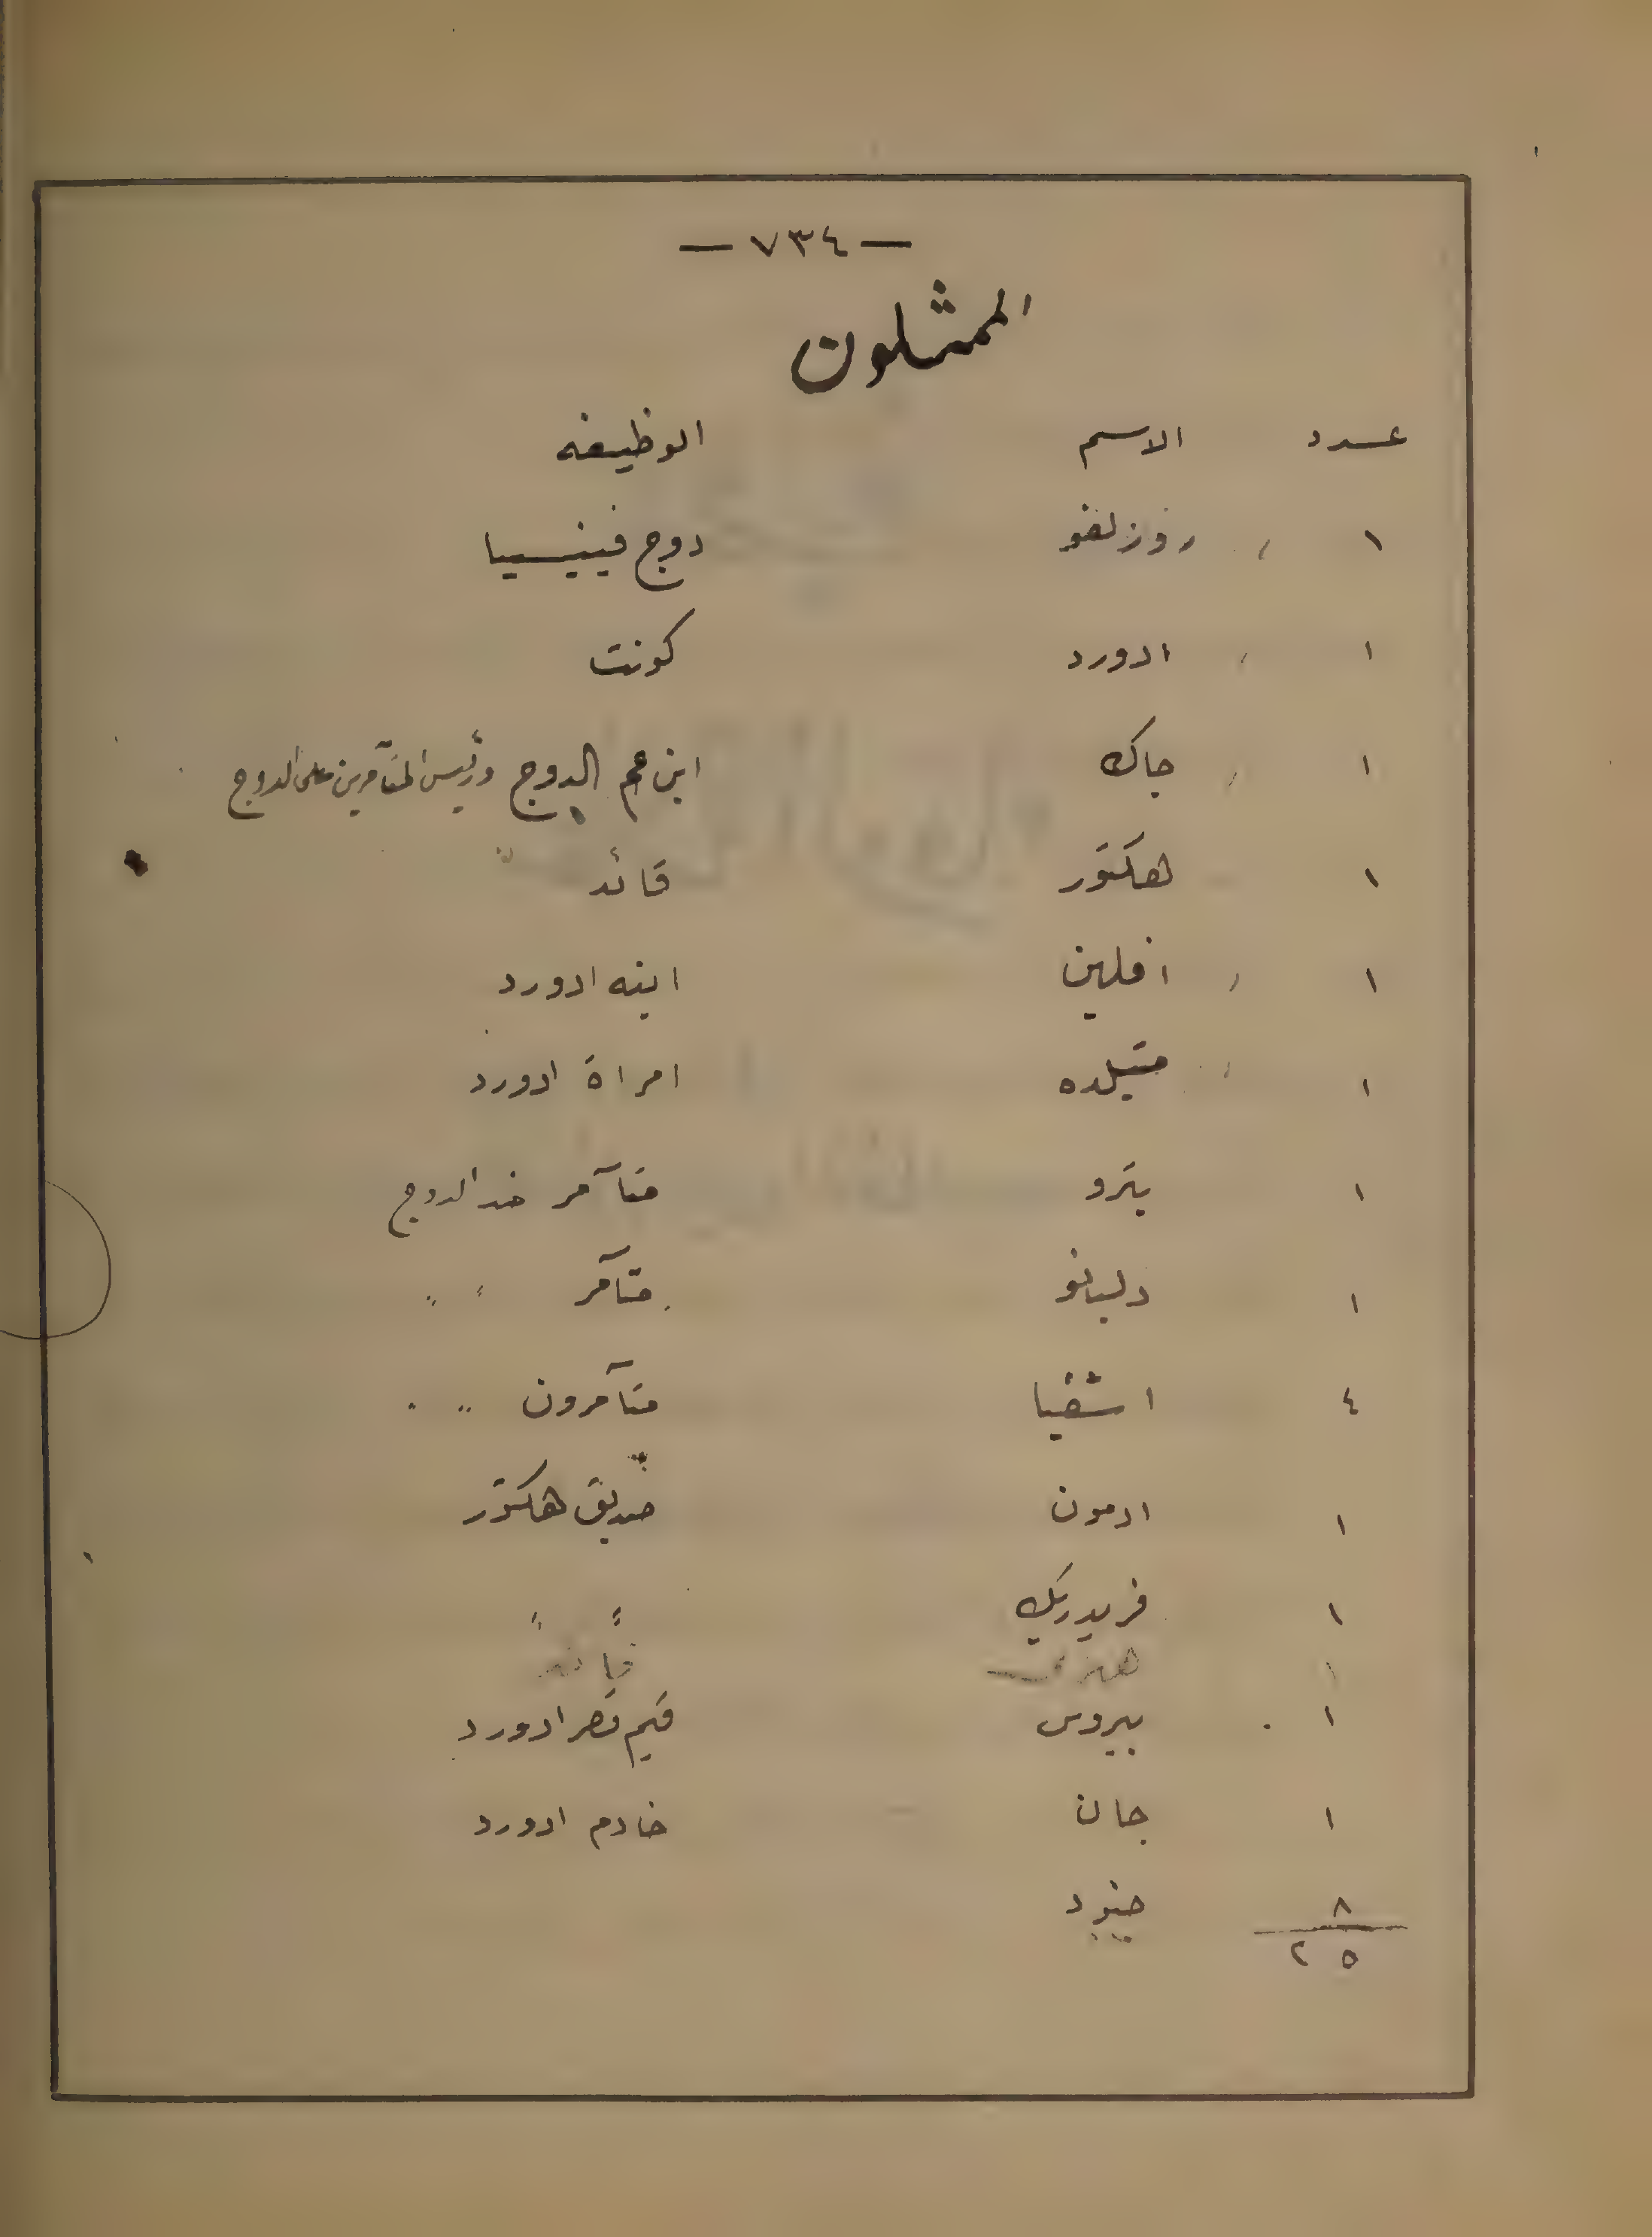 — ٧٣٤ —
الممثلون
عدد الاسم الوظيفه
١ روزلفو دوج فينيسيا
١ ادورد كونت
١ جاك ابن عم الدوج ورئيس المتآمرين على الدوج
١ هكتور قائد
١ افلين ابنه ادورد
١ متيلده امراة ادورد
١ بترو متآمر ضد الدوج
١ دلبانو متآمر " "
٤ اشقيا متآمرون " "
١ ادمون صديق هكتور
١ فريدريك " "
١
١ بيروس قيم قصر ادورد
١ جان خادم ادورد
٨ جنود
٢٥